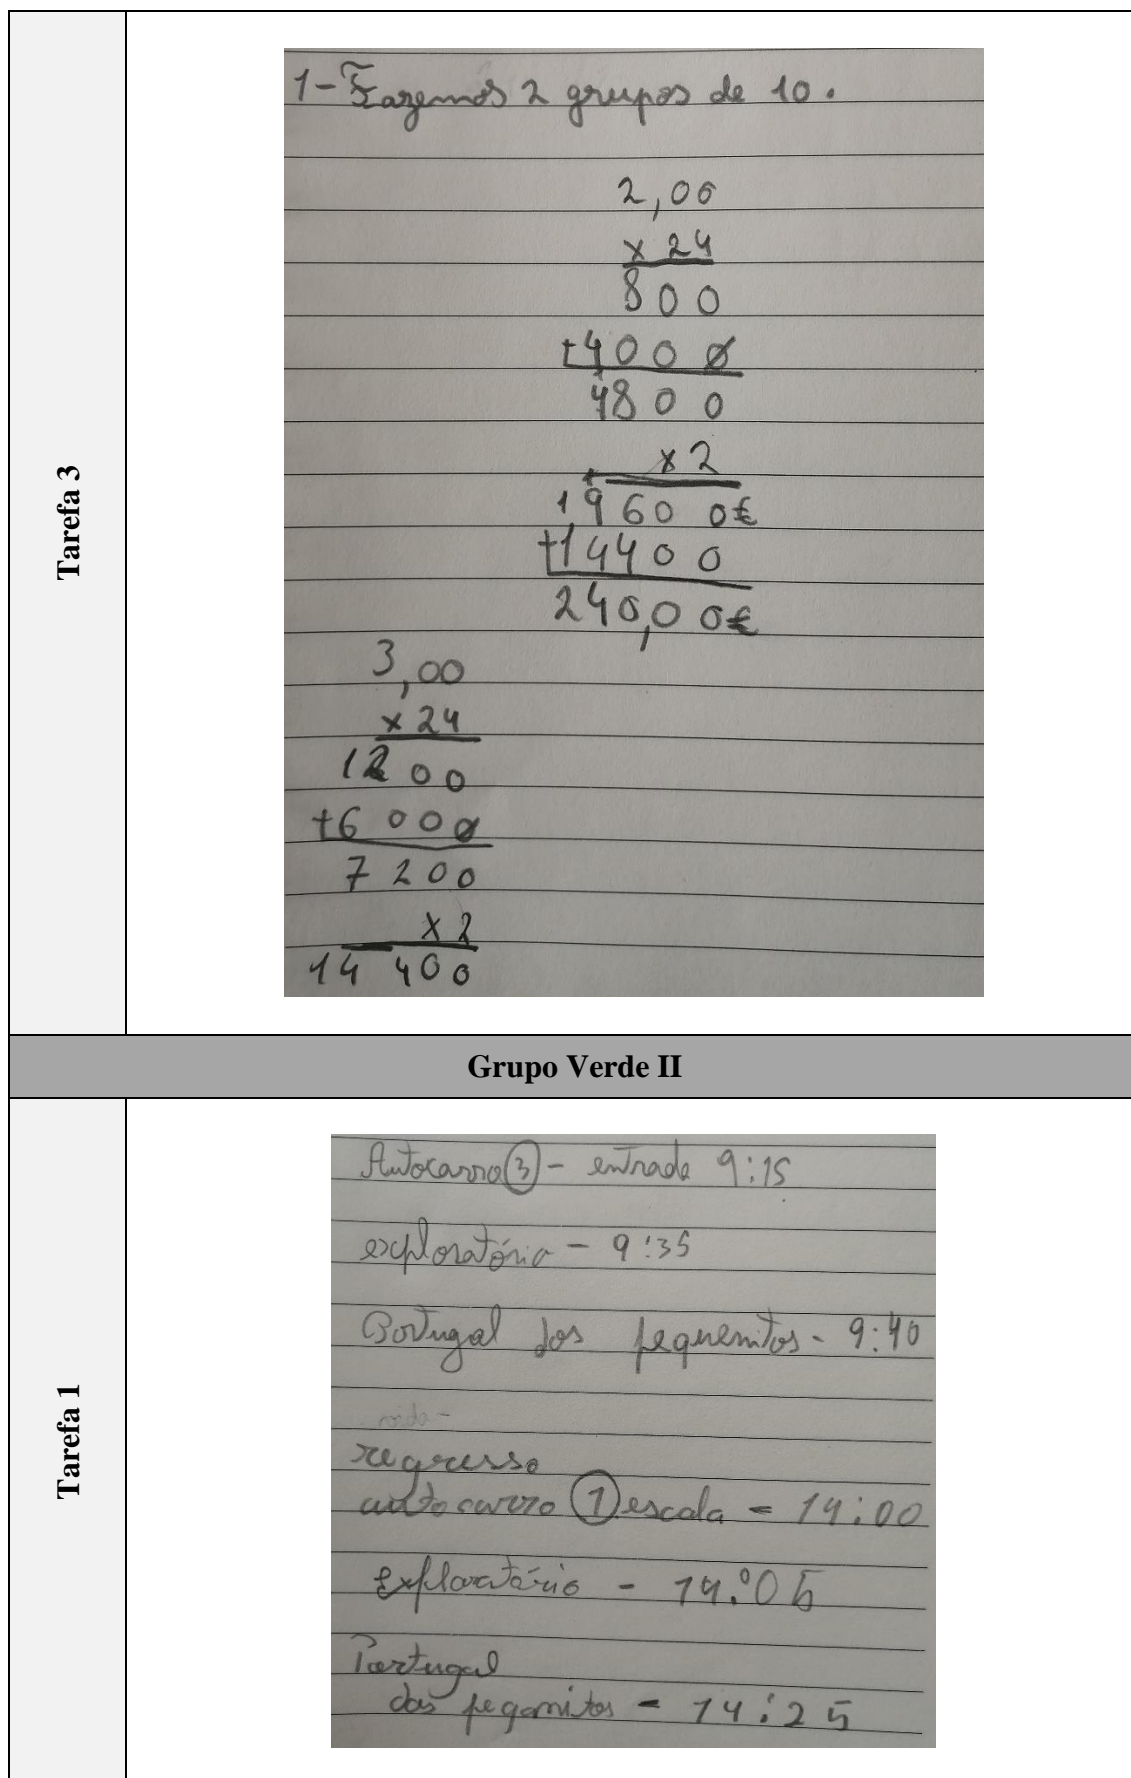 Tarefa 3
1- Fazemos 2 grupos de 10.
2,00
x 24
800
+4000
4800
x 2
19600€
+14400
240,00€
3,00
x 24
1200
+6000
7200
x 2
14400
Grupo Verde II
Tarefa 1
Autocarro 3 - entrada 9:15
exploratório - 9:35
Portugal dos pequenitos - 9:40
regresso
autocarro 1 escola = 14:00
Exploratório - 14:05
Portugal
dos peqonitos - 14:25